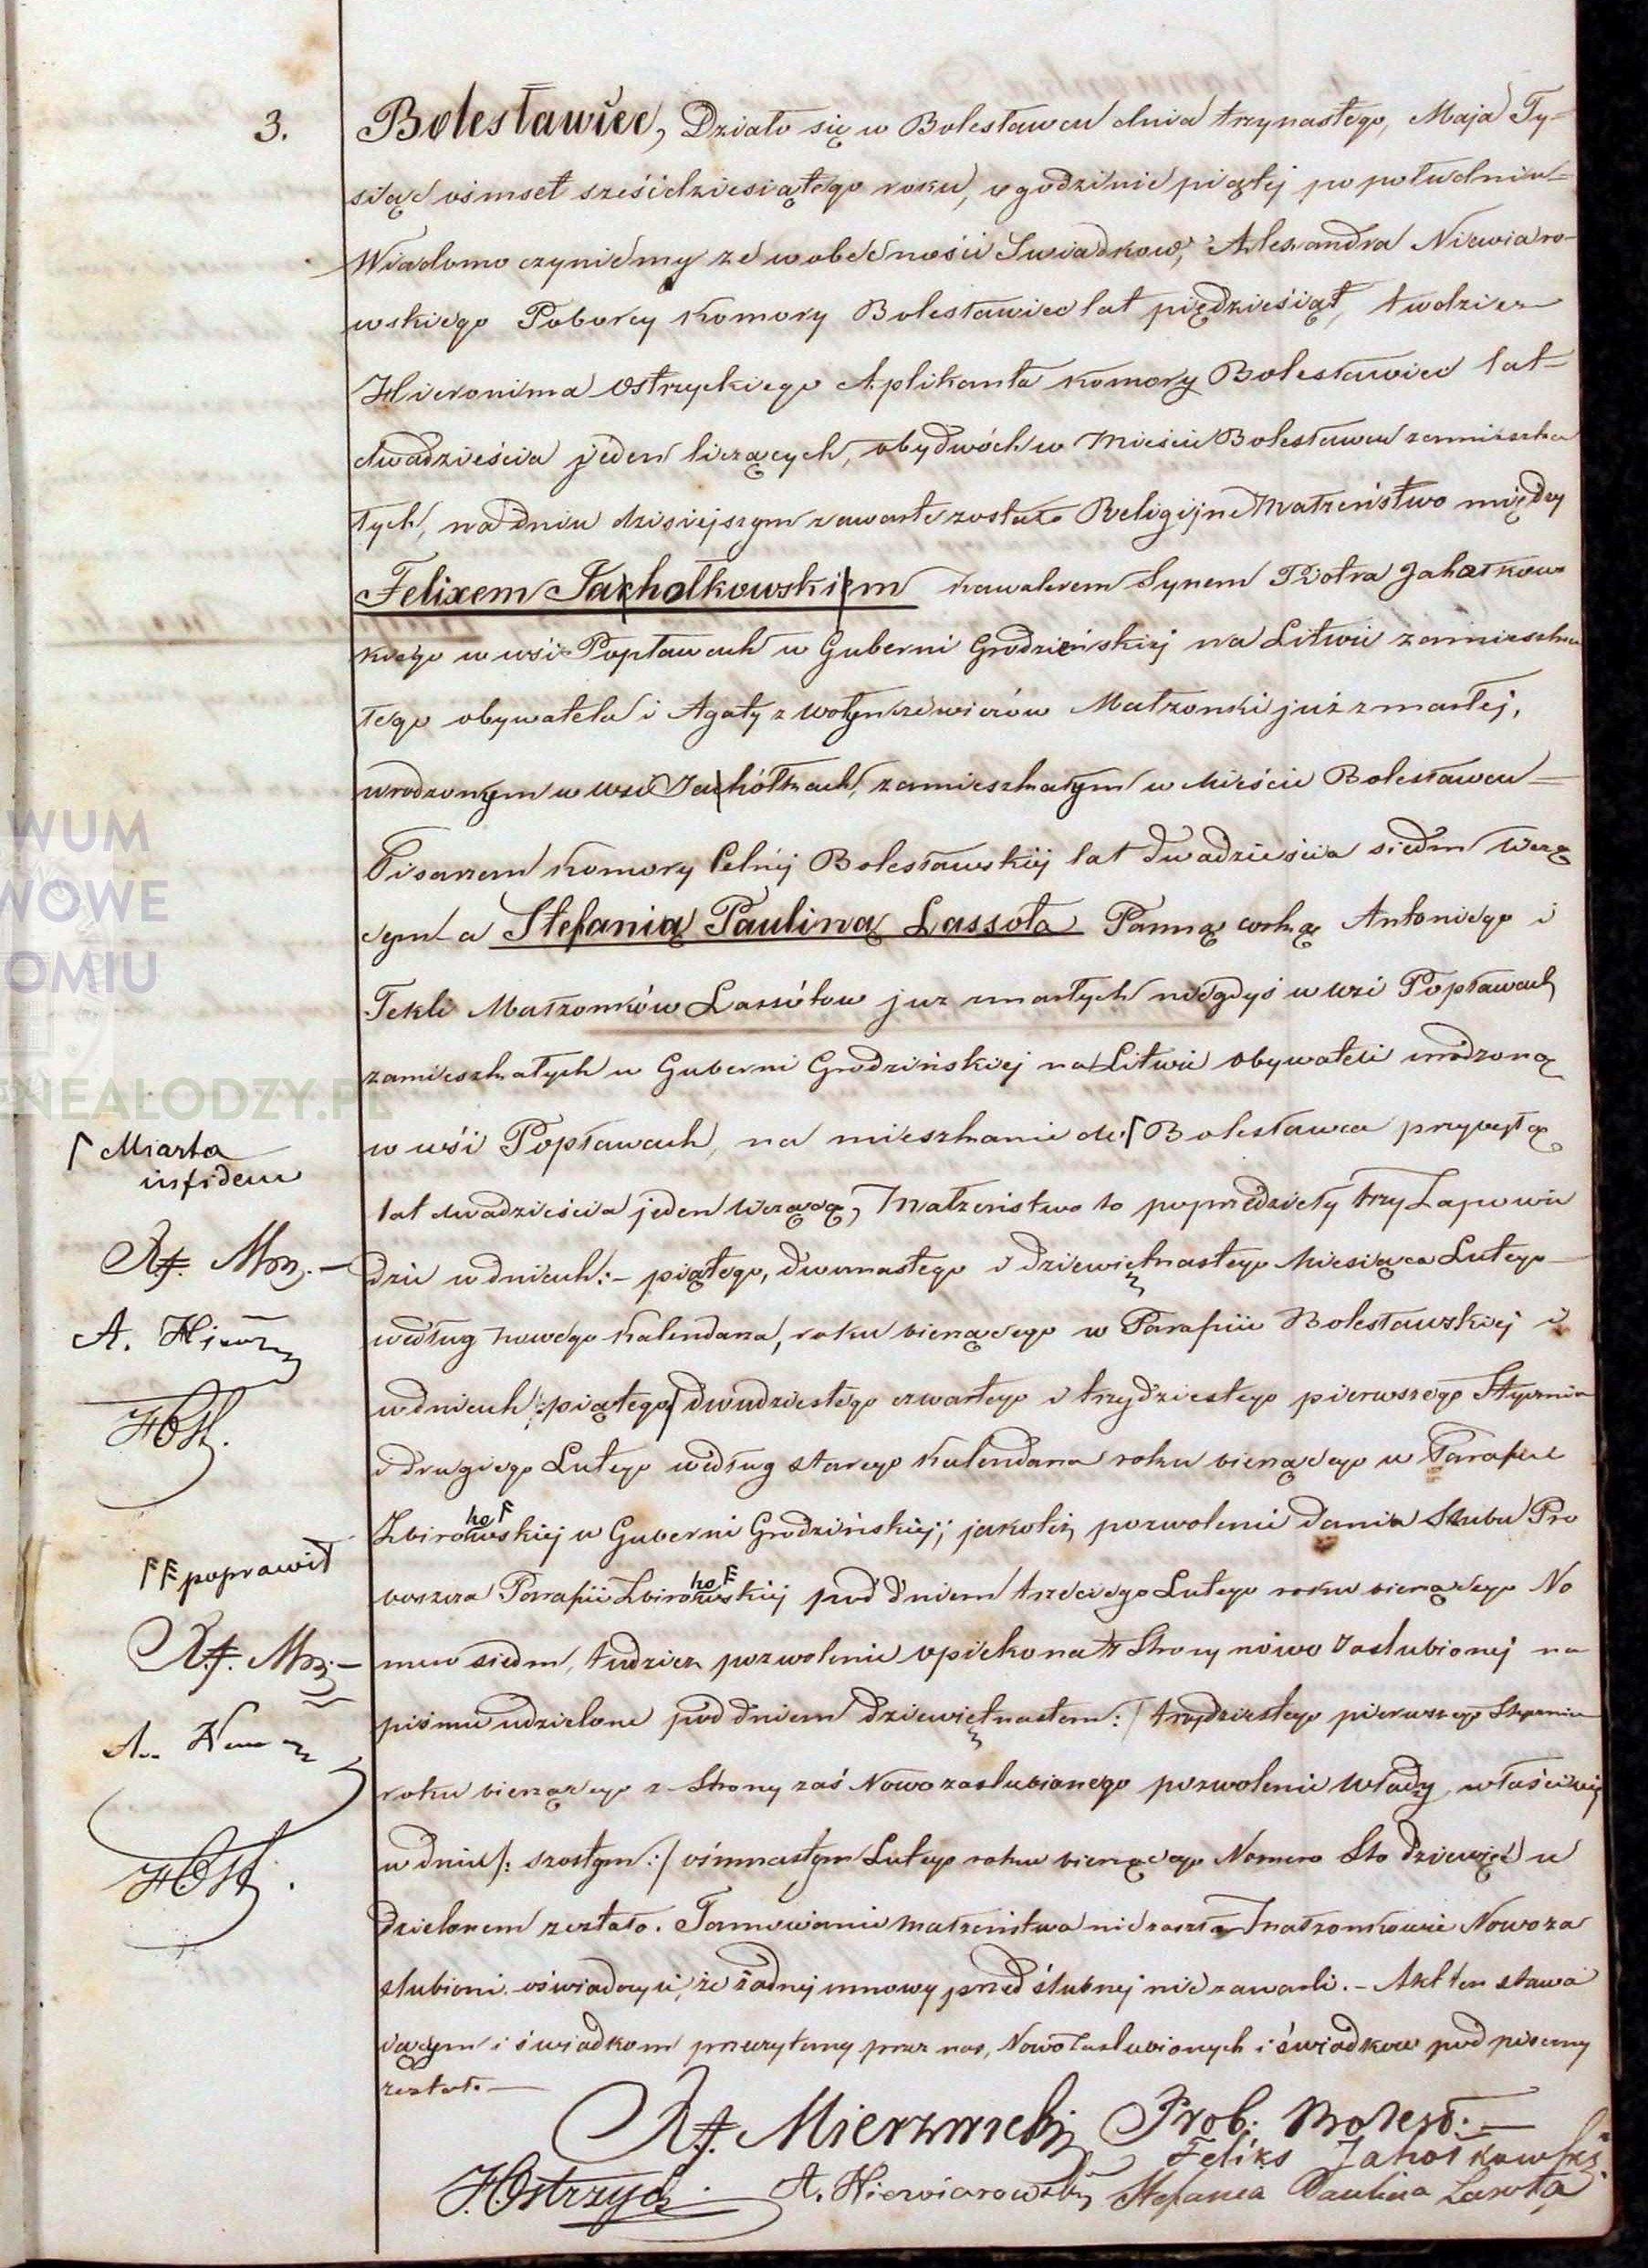 3.
Bolesławiec, Działo się w Bolesławcu dnia trzynastego, Maja Ty=
siąc ośmset sześćdziesiątego roku, o godzinie piątej po południu=
Wiadomo czyniemy ze w obecności Swiadkow, Alexandra Niewiaro-
wskiego Poborcy Komory Bolesławiec lat pięćdziesiąt, tudziez
Hieronima Ostrzyckiego Aplikanta Komory Bolesławiec lat
dwadzieścia jeden liczących, obydwóch w Mieście Bolesławcu zamieszka
łych, na dniu dzisiejszym zawarte zostało Religijne Małżeństwo między
Felixem Jachołkowskiem kawalerem Synem Piotra Jahołkows
kiego w wsi Popławach w Guberni Grodzieńskiej na Litwie zamieszka
łego obywatela i Agaty z Małżonki już zmarłej,
urodzonym w wsi Jachółkach, zamieszkałym w Mieście Bolesławcu=
Pisarzem Komory Celnej Bolesławskiej lat dwadzieścia siedm liczą
cym a Stefanią Pauliną Lassota Panną corką Antoniego i
Tekli Małżonków Lassótow juz zmarłych niegdyś w wsi Popławach
zamieszkałych w Guberni Grodzińskiej na Litwie obywateli urodzoną
w wśi Popławach, na mieszkanie do Bolesławca przybyłą
lat dwadzieścia jeden liczącą, Małżeństwo to poprzedziły trzy Zapowie
dzie w dniach:- piątego, dwunastego i dziewiętnastego Miesiąca Lutego
według nowego Kalendarza, roku bieżącego w Parafii Bolesławskiej i
w dniach :piątego dwudziestego czwartego i trzydziestego pierwszego Stycznia
i drugiego Lutego według starego Kalendarza roku bieżącego w Parafii
Zbirowskiej w Guberni Grodzińskiej; jakoteż pozwolenie dania Szlubu Pro
ho
boszcza Parafii Zbirowskiej pod dniem trzeciego Lutego roku bieżącego No
ho
mero siedm, tudziez pozwolenie opiekona Strony nowo Zaslubionej na
piśmie udzielone pod dniem dziewiętnastem: / trzydziestego pierwszego Stycznia
roku bieżącego z Strony zaś Nowozaslubionego pozwolenie Władzy właściwej
w dniu /: szostym :/ ośmnastym Lutego roku bieżącego Nomero Sto dziewięć u
dzielonem zostało. Tamowanie małżeństwa nie zaszło Małzonkowie Nowoza
slubieni oświadczyli, że żadnej umowy przed ślubnej nie zawarli. - Akt ten stawa
iącym i świadkom przeczytany przez nas, Nowozaslubionych i świadkow podpisany
został. -
Miasta
X. F. Mrz. -
HOst.
poprawił
X. F. Mrz -
HOst.
X. F. Mierzwicki Prob: Bolesł. -
Feliks Jahołkowski
H. Ostrzyc A. Niewiarowski Stefania Paulina Lasota